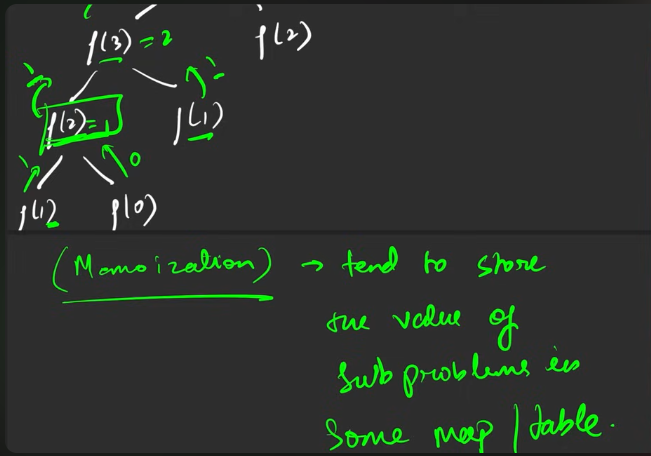 f(3) = 2
f(2)
f(2) = 1
f(1)
0
f(1)
f(0)
(Memoization) → tend to store
the value of
subproblems in
some map / table.